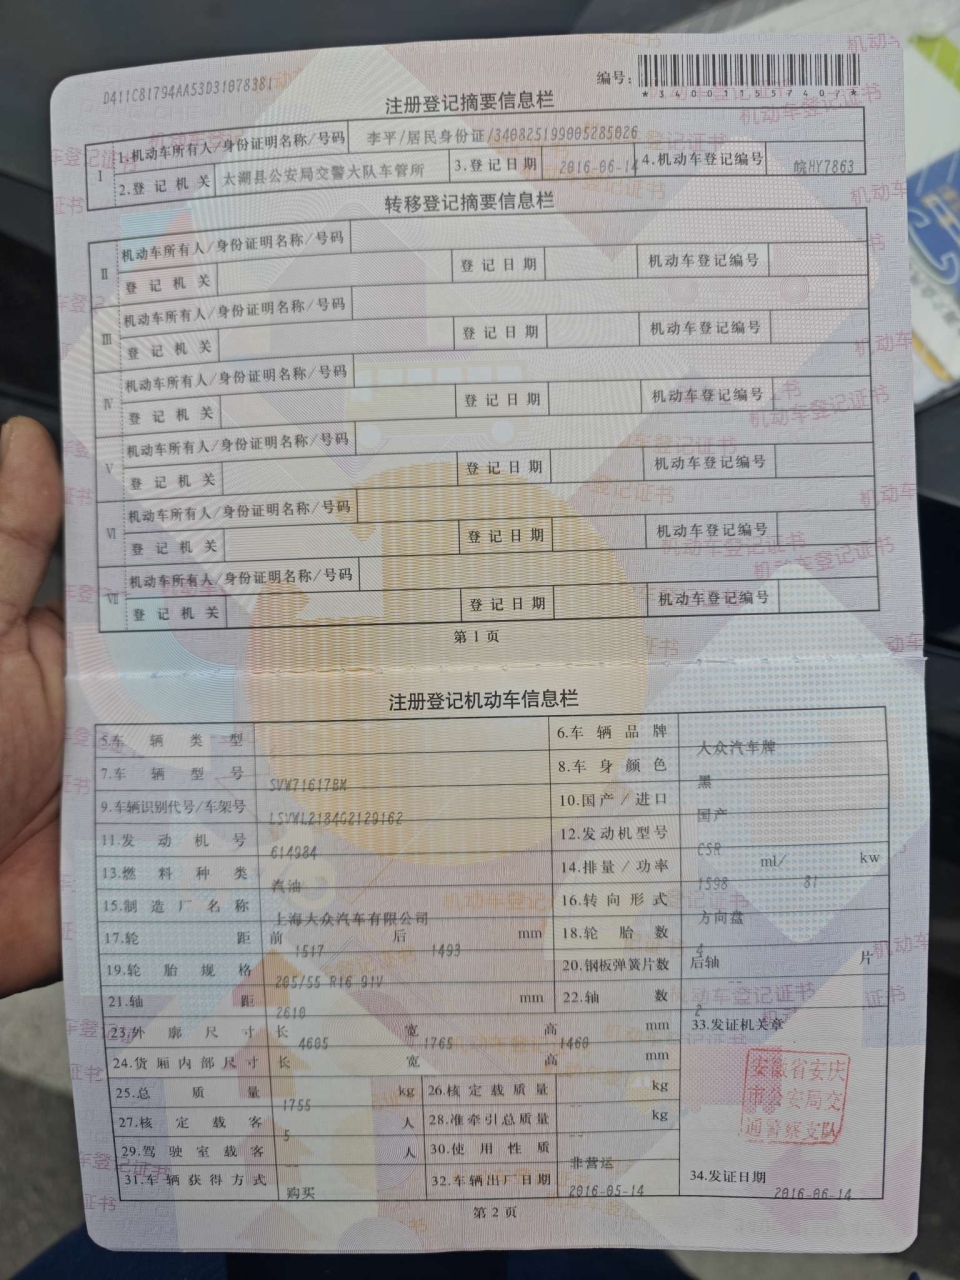 D411C81794AA53D31078381
编号:
*340011557407*
注册登记摘要信息栏
I 1.机动车所有人/身份证明名称/号码 李平/居民身份证/340825199005285026
2.登记机关 太湖县公安局交警大队车管所 3.登记日期 2016-06-14 4.机动车登记编号 皖HY7863
转移登记摘要信息栏
II 机动车所有人/身份证明名称/号码
登记机关 登记日期 机动车登记编号
III 机动车所有人/身份证明名称/号码
登记机关 登记日期 机动车登记编号
IV 机动车所有人/身份证明名称/号码
登记机关 登记日期 机动车登记编号
V 机动车所有人/身份证明名称/号码
登记机关 登记日期 机动车登记编号
VI 机动车所有人/身份证明名称/号码
登记机关 登记日期 机动车登记编号
VII 机动车所有人/身份证明名称/号码
登记机关 登记日期 机动车登记编号
第1页
注册登记机动车信息栏
5.车辆类型 6.车辆品牌 大众汽车牌
7.车辆型号 SVW71617BM 8.车身颜色 黑
9.车辆识别代号/车架号 LSVWL2184G2129162 10.国产/进口 国产
11.发动机号 614984 12.发动机型号 CSR
13.燃料种类 汽油 14.排量/功率 1598 ml/ 81 kw
15.制造厂名称 上海大众汽车有限公司 16.转向形式 方向盘
17.轮距 前 1517 后 1493 mm 18.轮胎数 4
19.轮胎规格 205/55 R16 91V 20.钢板弹簧片数 后轴 片
21.轴距 2610 mm 22.轴数 2
23.外廓尺寸 长 4605 宽 1765 高 1460 mm 33.发证机关章
24.货厢内部尺寸 长 宽 高 mm
25.总质量 1755 kg 26.核定载质量 -- kg
27.核定载客 5 人 28.准牵引总质量 -- kg
29.驾驶室载客 -- 人 30.使用性质 非营运
31.车辆获得方式 购买 32.车辆出厂日期 2016-05-14 34.发证日期 2016-06-14
安徽省安庆
市公安局交
通警察支队
第2页